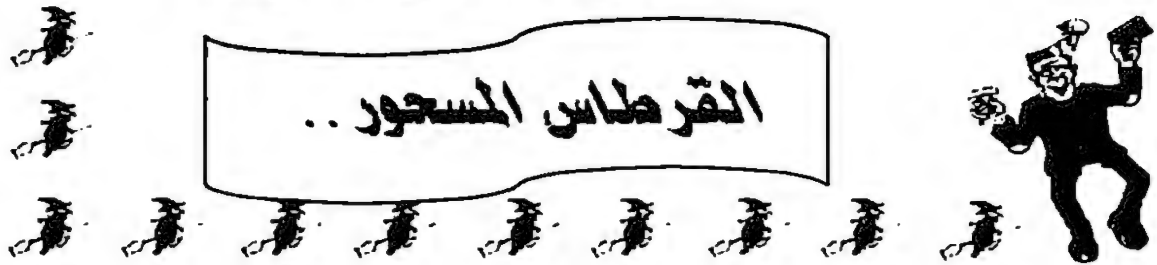 القرطاس المسحور..